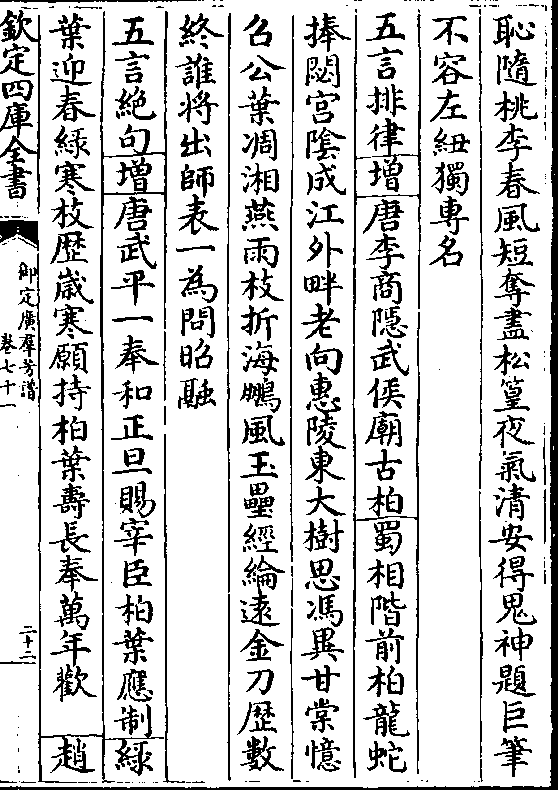 恥隨桃李春風短奪盡松篁夜氣清安得鬼神題巨筆
不容左紐獨專名
五言排律增唐李商隱武侯廟古柏蜀相階前柏龍蛇
捧閟宮陰成江外畔老向惠陵東大樹思馮異甘棠憶
召公葉凋湘燕雨枝折海鵬風玉壘經綸遠金刀歴數
終誰將出師表一為問昭融
五言絶句增唐武平一奉和正旦賜宰臣柏葉應制綠
葉迎春綠寒枝歴歲寒願持柏葉壽長奉萬年歡 趙
欽定四庫全書
御定廣羣芳譜
卷七十一
二十二